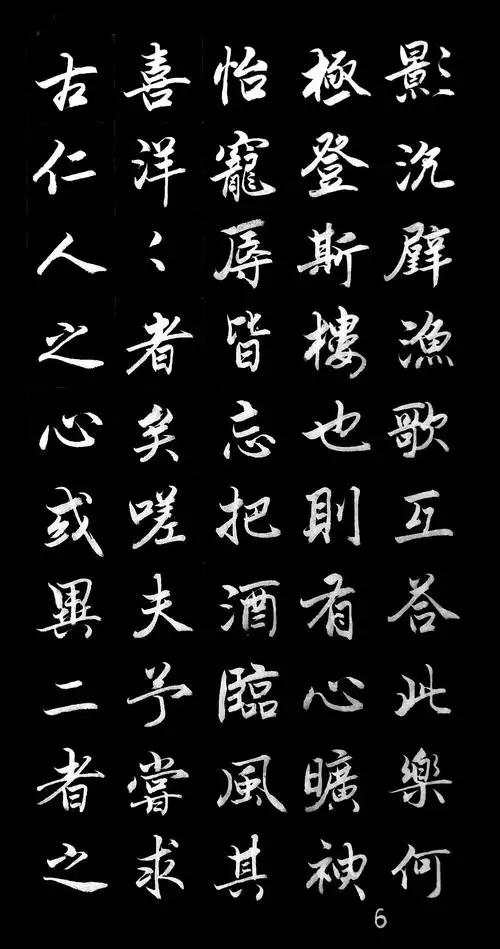 影沉璧漁歌互答此樂何
極登斯樓也則有心曠神
怡寵辱皆忘把酒臨風其
喜洋〻者矣嗟夫予嘗求
古仁人之心或異二者之
6